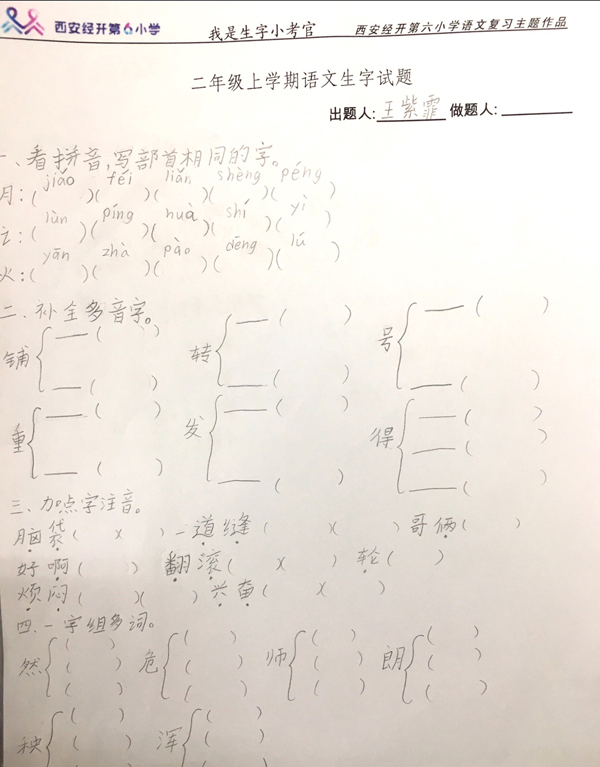 西安经开第六小学 我是生字小考官 西安经开第六小学语文复习主题作品
二年级上学期语文生字试题
出题人:王紫霏 做题人:
一、看拼音,写部首相同的字。
jiāo féi liǎn shèng péng
月:( )( )( )( )( )
lùn píng huà shí yì
讠:( )( )( )( )( )
yān zhà pào dēng lú
火:( )( )( )( )( )
二、补全多音字。
铺 — ( ) — ( ) 转 — ( ) — ( ) 号 — ( ) — ( )
重 — ( ) — ( ) 发 — ( ) — ( ) 得 — ( ) — ( ) — ( )
三、加点字注音。
脑袋( )( ) 一道缝( )( ) 哥俩( )
好啊( ) 翻滚( )( ) 轮( )
烦闷( )( ) 兴奋( )( )
四、一字组多词。
然 ( ) ( ) ( ) 危 ( ) ( ) ( ) 师 ( ) ( ) ( ) 朗 ( ) ( ) ( )
秧 ( ) ( ) 浑 ( ) ( )